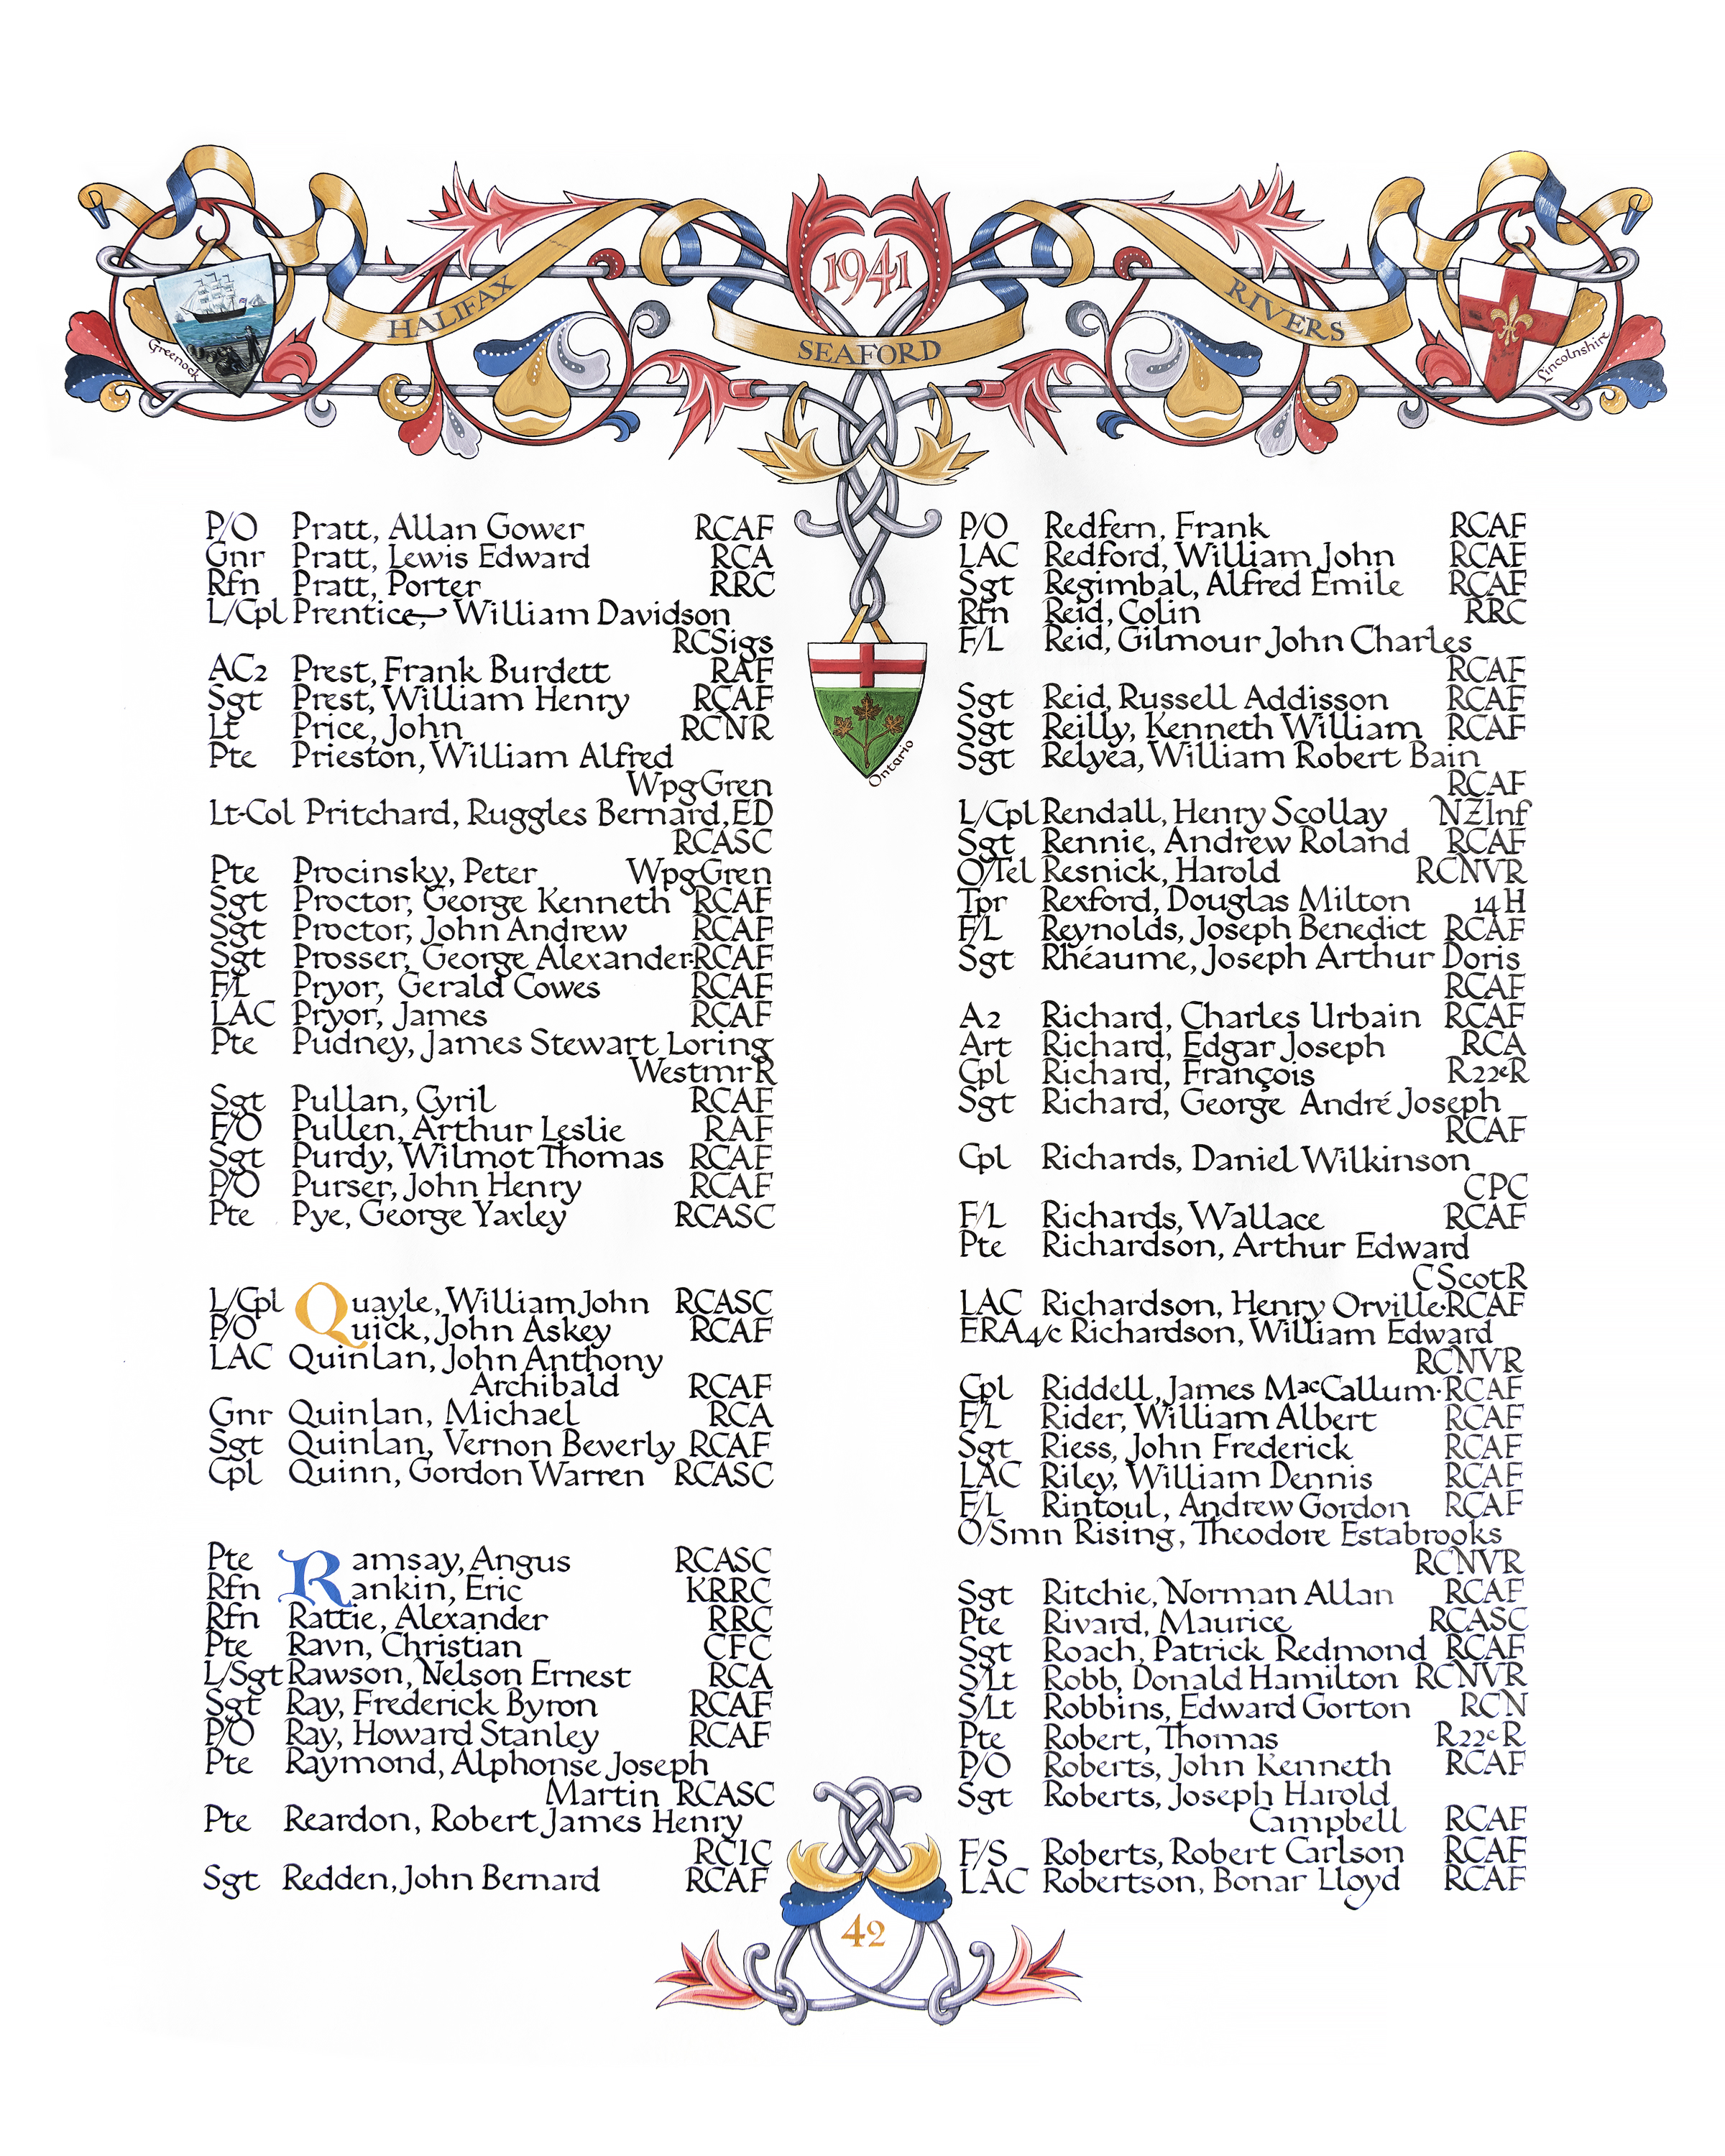 1941
HALIFAX
SEAFORD
RIVERS
Greenock
Lincolnshire
Ontario
P/O Pratt, Allan Gower RCAF
Gnr Pratt, Lewis Edward RCA
Rfn Pratt, Porter RRC
L/Cpl Prentice, William Davidson
RCSigs
AC2 Prest, Frank Burdett RAF
Sgt Prest, William Henry RCAF
Lt Price, John RCNR
Pte Prieston, William Alfred
WpgGren
Lt-Col Pritchard, Ruggles Bernard, ED
RCASC
Pte Procinsky, Peter WpgGren
Sgt Proctor, George Kenneth RCAF
Sgt Proctor, John Andrew RCAF
Sgt Prosser, George Alexander·RCAF
F/L Pryor, Gerald Cowes RCAF
LAC Pryor, James RCAF
Pte Pudney, James Stewart Loring
WestmrR
Sgt Pullan, Cyril RCAF
F/O Pullen, Arthur Leslie RAF
Sgt Purdy, Wilmot Thomas RCAF
P/O Purser, John Henry RCAF
Pte Pye, George Yaxley RCASC
L/Cpl Quayle, William John RCASC
P/O Quick, John Askey RCAF
LAC Quinlan, John Anthony
Archibald RCAF
Gnr Quinlan, Michael RCA
Sgt Quinlan, Vernon Beverly RCAF
Cpl Quinn, Gordon Warren RCASC
Pte Ramsay, Angus RCASC
Rfn Rankin, Eric KRRC
Rfn Rattie, Alexander RRC
Pte Ravn, Christian CFC
L/Sgt Rawson, Nelson Ernest RCA
Sgt Ray, Frederick Byron RCAF
P/O Ray, Howard Stanley RCAF
Pte Raymond, Alphonse Joseph
Martin RCASC
Pte Reardon, Robert James Henry
RCIC
Sgt Redden, John Bernard RCAF
P/O Redfern, Frank RCAF
LAC Redford, William John RCAF
Sgt Regimbal, Alfred Emile RCAF
Rfn Reid, Colin RRC
F/L Reid, Gilmour John Charles
RCAF
Sgt Reid, Russell Addisson RCAF
Sgt Reilly, Kenneth William RCAF
Sgt Relyea, William Robert Bain
RCAF
L/Cpl Rendall, Henry Scollay NZInf
Sgt Rennie, Andrew Roland RCAF
O/Tel Resnick, Harold RCNVR
Tpr Rexford, Douglas Milton 14 H
F/L Reynolds, Joseph Benedict RCAF
Sgt Rhéaume, Joseph Arthur Doris
RCAF
A2 Richard, Charles Urbain RCAF
Art Richard, Edgar Joseph RCA
Cpl Richard, François R22eR
Sgt Richard, George André Joseph
RCAF
Cpl Richards, Daniel Wilkinson
CPC
F/L Richards, Wallace RCAF
Pte Richardson, Arthur Edward
CScotR
LAC Richardson, Henry Orville·RCAF
ERA4/c Richardson, William Edward
RCNVR
Cpl Riddell, James MacCallum·RCAF
F/L Rider, William Albert RCAF
Sgt Riess, John Frederick RCAF
LAC Riley, William Dennis RCAF
F/L Rintoul, Andrew Gordon RCAF
O/Smn Rising, Theodore Estabrooks
RCNVR
Sgt Ritchie, Norman Allan RCAF
Pte Rivard, Maurice RCASC
Sgt Roach, Patrick Redmond RCAF
S/Lt Robb, Donald Hamilton RCNVR
S/Lt Robbins, Edward Gorton RCN
Pte Robert, Thomas R22eR
P/O Roberts, John Kenneth RCAF
Sgt Roberts, Joseph Harold
Campbell RCAF
F/S Roberts, Robert Carlson RCAF
LAC Robertson, Bonar Lloyd RCAF
42